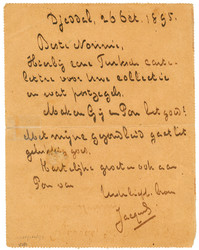 Djeddah, 26 Oct. 1895.
Beste Nonnie,
Hierbij eene Turksche carte-
lettre voor Uwe collectie
en wat postzegels.
Maken Gij en Pon het goed?
Met mijne gezondheid gaat het
gelukkig goed.
Hartelijke groeten ook aan
Pon van
Jacques